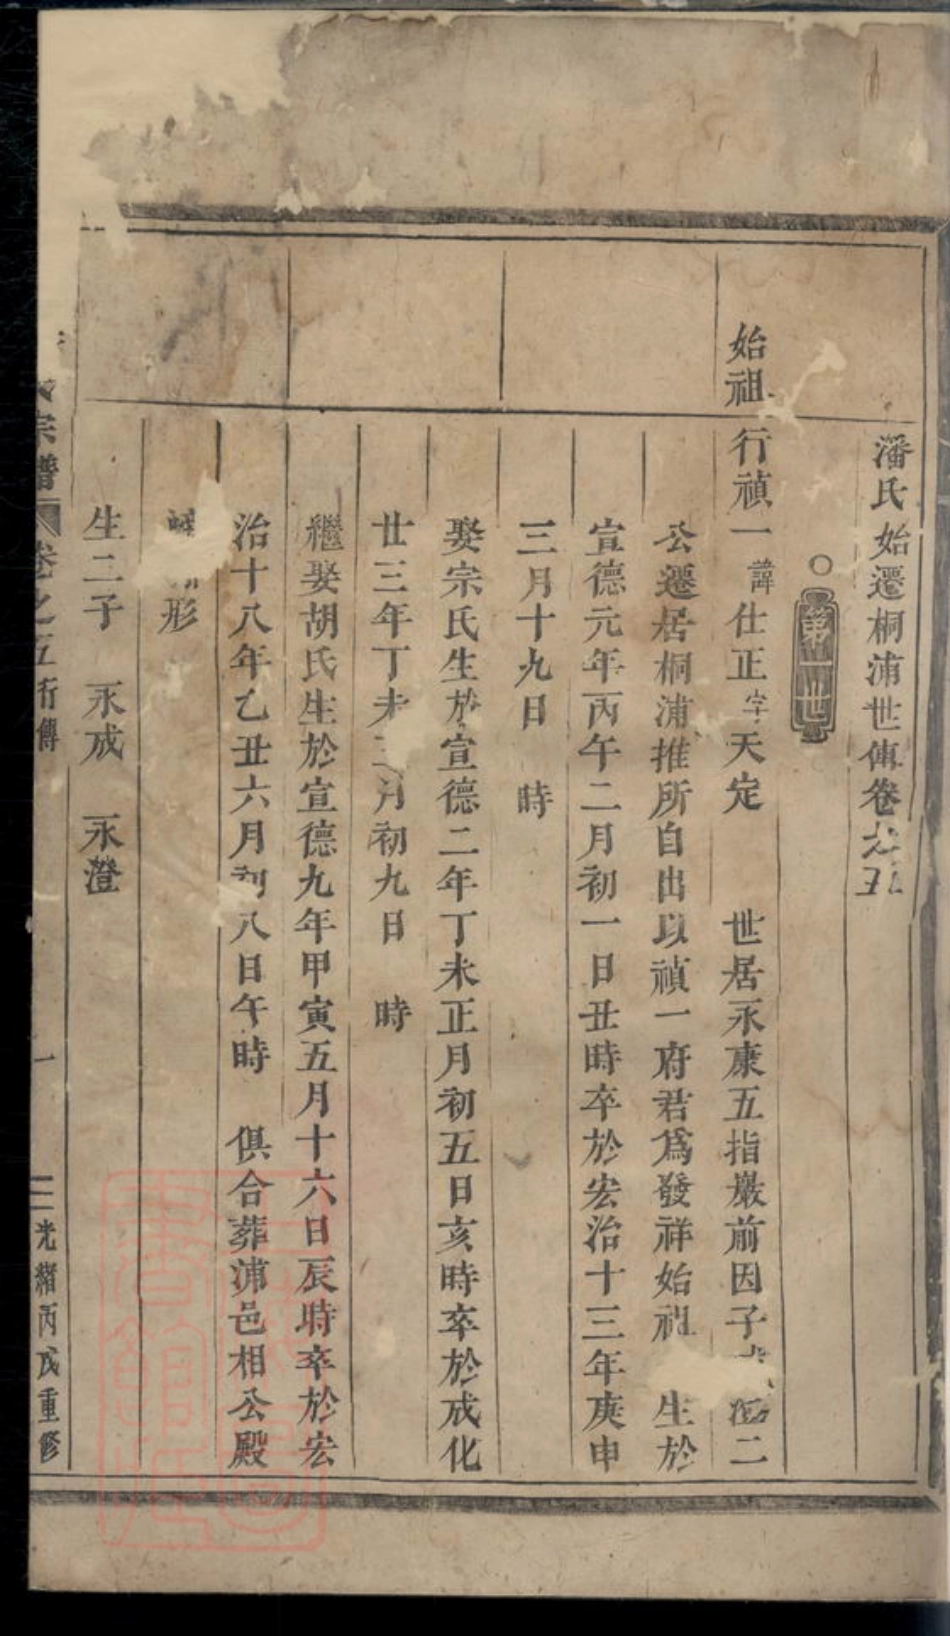 潘氏始遷桐浦世傳卷之五
○第一世
始祖 行禎一 諱仕正 字天定 世居永康五指巖前因子 二
公遷居桐浦推所自出以禎一府君爲發祥始祖 生於
宣德元年丙午二月初一日丑時卒於宏治十三年庚申
三月十九日 時
娶宗氏生於宣德二年丁未正月初五日亥時卒於成化
廿三年丁未 月初九日 時
繼娶胡氏生於宣德九年甲寅五月十六日辰時卒於宏
治十八年乙丑六月初八日午時 俱合葬浦邑相公殿
形
生二子 永成 永澄
氏宗譜 卷之五 行傳 一 光緒丙戌重修